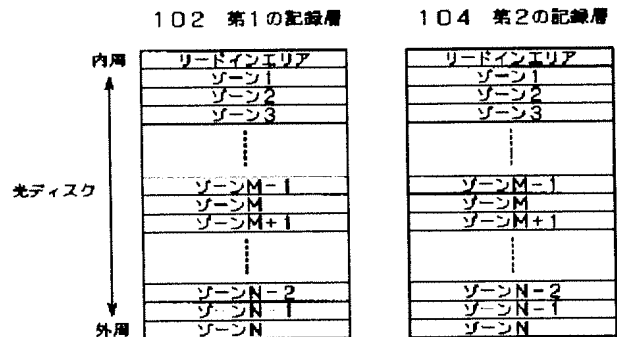 102 第1の記録層
104 第2の記録層
内周
リードインエリア
ゾーン1
ゾーン2
ゾーン3
ゾーンM-1
ゾーンM
ゾーンM+1
ゾーンN-2
ゾーンN-1
ゾーンN
光ディスク
外周
リードインエリア
ゾーン1
ゾーン2
ゾーン3
ゾーンM-1
ゾーンM
ゾーンM+1
ゾーンN-2
ゾーンN-1
ゾーンN